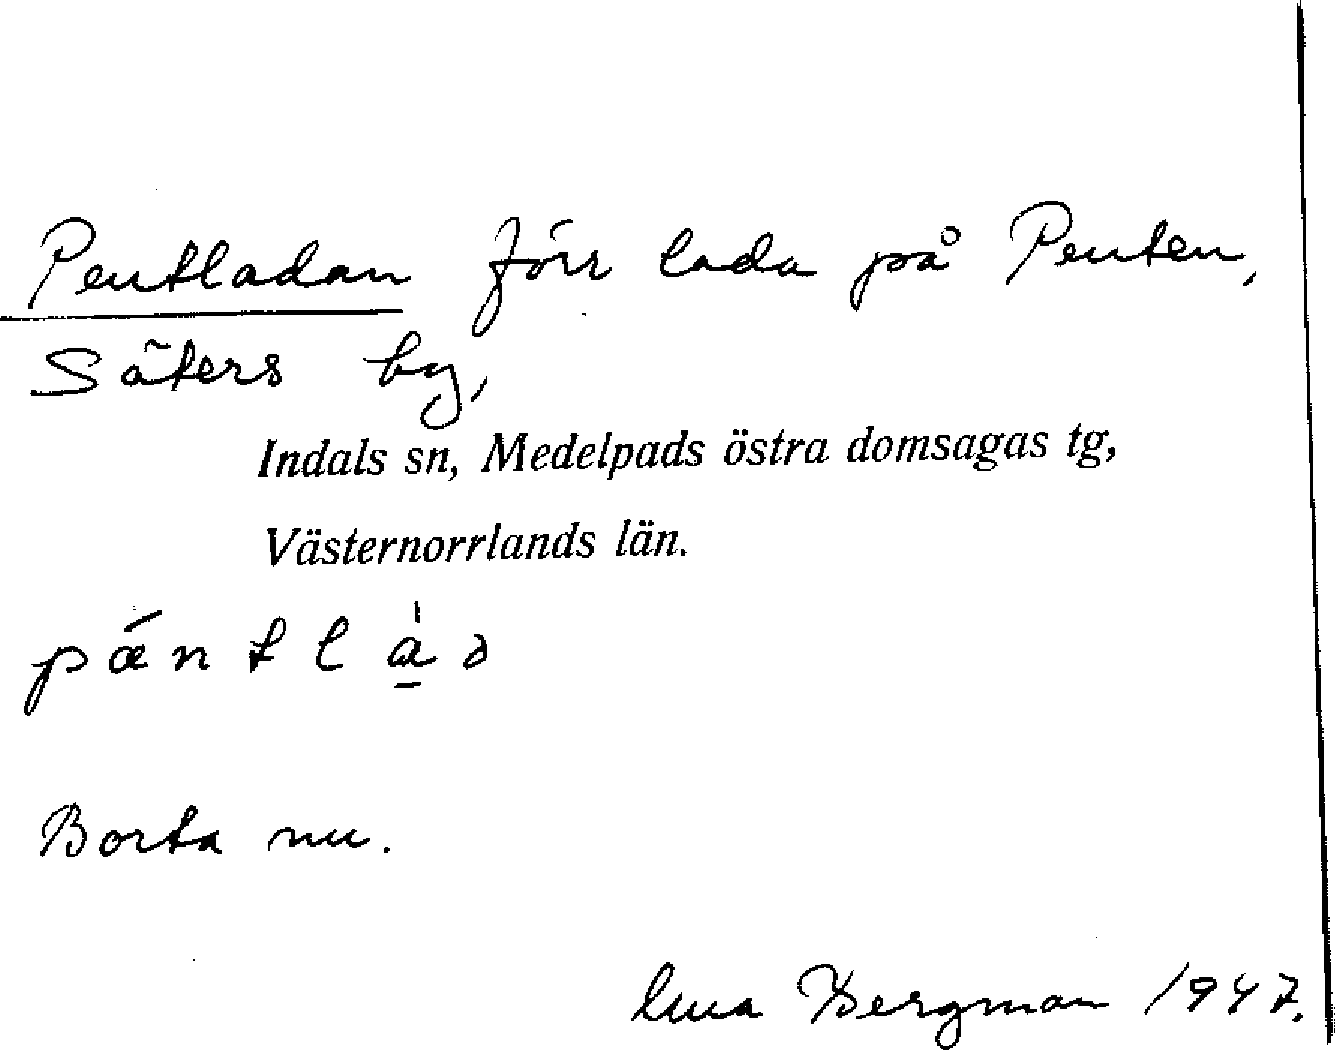 Pentladan förr lada på Penten,
Säters by,
Indals sn, Medelpads östra domsagas tg,
Västernorrlands län.
pæ´ntla̱̍ə
Borta nu.
Bergman 1947.